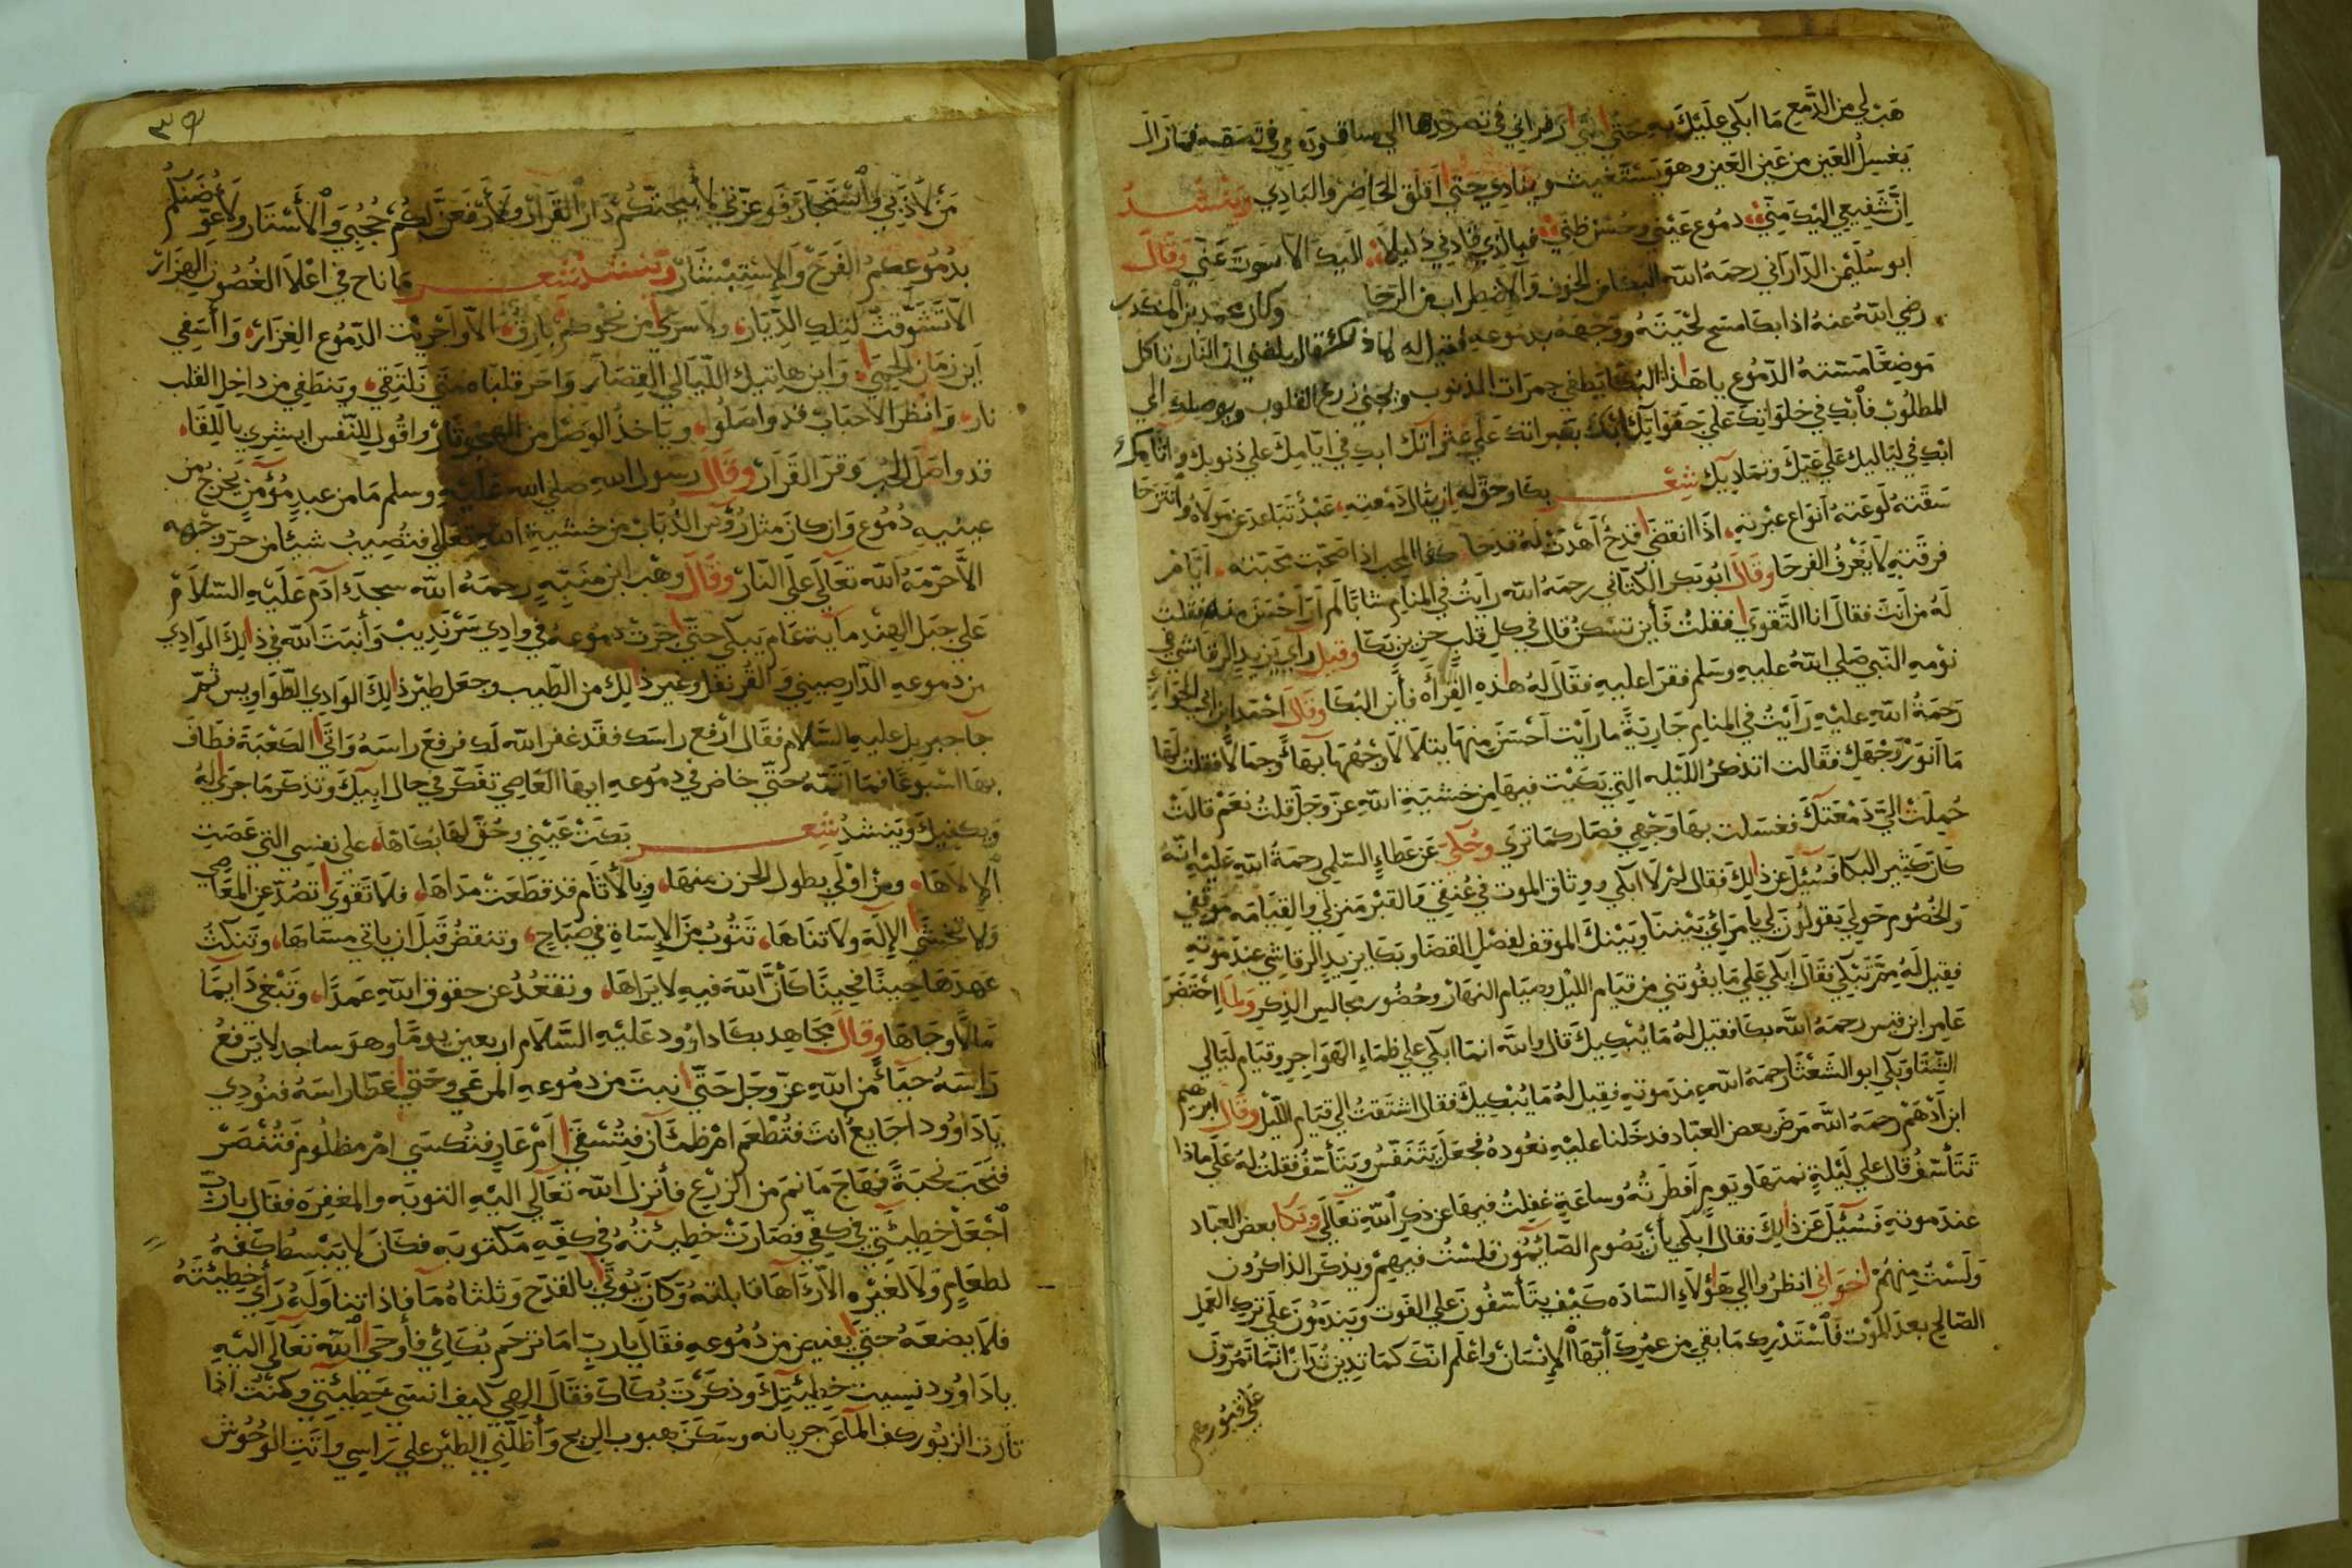 هب لي من الدمع ما ابكي عليك به حتى في تصعدها الي ساقوته في تصقه فما زال
يغسل العين من عين العين وهو يستغيث وينادي حتي اقلق الحاضر والبادي وينشد
ان شفيعي اليك مني دموع عيني وحسن ظني فبالذي قادني ذليلا اليك الا عفوت عني وقال
ابو سليمن الداراني رحمه الله البكا من الخوف والاضطراب من الرجا وكان محمد بن المنكدر
رضي الله عنه اذا بكا مسح لحيته ووجهه بدموعه فقيل له لماذا قال بلغني ان النار تاكل
موضعا مسته الدموع يا هذا البكا يطفي جمرات الذنوب ويحيي زرع القلوب ويوصلك الي
المطلوب فابك في خلواتك علي جفواتك ابك بعبراتك علي عثراتك ابك في ايامك علي ذنوبك واثامك
ابك في لياليك علي غيك وتماديك شعر بكا وحق له ارسال دمعته عبد تباعد عن مولاه وانتزحا
سقته لوعته انواع عبرته اذا انقضا قدح اهدت له قدحا كذا المحب اذا صحت محبته ايام
فرقته لا يعرف الفرحا وقال ابو بكر الكتاني رحمه الله رايت في المنام شابا لم ار احسن منه فقلت
له من انت فقال انا التقوي فقلت فأين تسكن قال في كل قلب حزين بكا وقيل رأي يزيد الرقاشي في
نومه النبي صلي الله عليه وسلم فقرا عليه فقال له هذه القرأه فأين البكا وقال احمد ابن ابي الحواري
رحمة الله عليه رأيت في المنام جارية ما رايت احسن منها يتلالا وجهها بهاً وجمالا فقلت لها
ما انور وجهك فقالت اتذكر الليله التي بكيت فيها من خشية الله عز وجل قلت نعم قالت
حملت الي دمعتك فغسلت بها وجهي فصار كما تري وحكي عن عطاء السلمي رحمة الله عليه انه
كان كثير البكا فسئل عن ذلك فقال لم لا ابكي ووثاق الموت في عنقي والقبر منزلي والقيامه موقفي
والخصوم حولي يقولون لي يا مرائ بيننا وبينك الموقف لفصل القضا وبكا يزيد الرقاشي عند موته
فقيل له مم تبكي فقال ابكي علي ما يفوتني من قيام الليل وصيام النهار وحضور مجالس الذكر ولما احتضر
عامر ابن قيس رحمه الله بكا فقيل له ما يبكيك قال والله انما ابكي علي ظماء الهواجر وقيام ليالي
الشتا وبكي ابو الشعثا رحمه الله عند موته فقيل له ما يبكيك فقال اشتقت الي قيام الليل وقال ابرهيم
ابن أدهم رحمه الله مرض بعض العباد فدخلنا عليه نعوده فجعل يتنفس ويتأسف فقلت له علي ماذا
تتأسف قال علي ليلة نمتها ويوم افطرته وساعة غفلت فيها عن ذكر الله تعالي وبكا بعض العباد
عند موته فسئل عن ذلك فقال ابكي بأن يصوم الصائمون فلست فيهم ويذكر الذاكرون
ولست منهم اخواني انظروا الي هؤلاء الساده كيف يتأسفون علي الفوت ويندمون علي ترك العمل
الصالح بعد الموت فاستدرك ما بقي من عمرك أيها الانسان واعلم انك كما تدين تدان انما تمرون
علي قبور
٣٩
من لاذ بي واستجار فوعزتي لأبيحنكم دار القرار ولأرفعن لكم حجبي والأستار ولأعوضنكم
بدموعكم الفرح والاستبشار وتنشد شعر ما ناح في اعلا الغصون الهزار
الا تشوقت لتلك الديار ولا سري من نحوكم بارق الا واجريت الدموع الغزار وا أسفي
اين زمان الحمي واين هاتيك الليالي القصار واحر قلباه متي نلتقي وينطفي من داخل القلب
نار وانظر الاحباب قد واصلوا وياخذ الوصل من الهجر ثار واقول للنفس ابشري باللقا
قد واصل الحب وقر القرار وقال رسول الله صلي الله عليه وسلم ما من عبد مؤمن يخرج من
عينيه دموع وان كان مثل رؤس الذباب من خشية الله تعالي فتصيب شيئا من حر وجهه
الا حرمه الله تعالي علي النار وقال وهب ابن منبه رحمه الله سجد آدم عليه السلام
علي جبل الهند ماية عام يبكي حتي جرت دموعه في وادي سرنديب وأنبت الله في ذلك الوادي
من دموعه الدارصيني والقرنفل وغير ذلك من الطيب وجعل طير ذلك الوادي الطواويس ثم
جآ جبريل عليه السلام فقال ارفع راسك فقد غفر الله لك فرفع راسه واتي الكعبة فطاف
بها اسبوعا فما اتمه حتي خاض في دموعه ايها العاصي تفكر في حال ابيك وتذكر ما جري له
ويكفيك وينشد شعر بكت عيني وحق لها بكاها علي نفسي التي عصت
الالاها ومن اولي بطول الحزن منها وبالأثام قد قطعت مداها فلا تقوي تصد عن المعاصي
ولا تخشي الإله ولا تناها تتوب من الإساة في صباح وتنقض قبل ان ياتي مساها وتنكث
عهدها حينا فحينا كأن الله فيه لا يراها وتقعد عن حقوق الله عمدا وتبغي دايما
مالا وجاها وقال مجاهد بكا داوود عليه السلام اربعين يوما وهو ساجد لا يرفع
راسه حيآء من الله عز وجل حتي انبت من دموعه المرعي وحتي غطا راسه فنودي
يا داوود اجايع أنت فتطعم ام ظمآن فتسقي ام عار فتكسي ام مظلوم فتنصر
فنحب نحبة فهاج ما نم من الزرع فأنزل الله تعالي اليه التوبه والمغفره فقال يا رب
اجعل خطيئتي في كفي فصارت خطيئته في كفه مكتوبه فكان لا يبسط كفه
لطعام ولا لغيره الا رآها فابكته وكان يوتي بالقدح وثلثاه مآ فاذا تناوله رأي خطيئته
فلا يضعه حتي يفيض من دموعه فقال يا رب اما ترحم بكائي فأوحي الله تعالي اليه
يا داوود نسيت خطيئتك وذكرت بكاك فقال الهي كيف انسي خطيئتي وكنت اذا
تلوت الزبور كف المآ عن جريانه وسكن هبوب الريح وأظلني الطير علي راسي واتت الوحوش